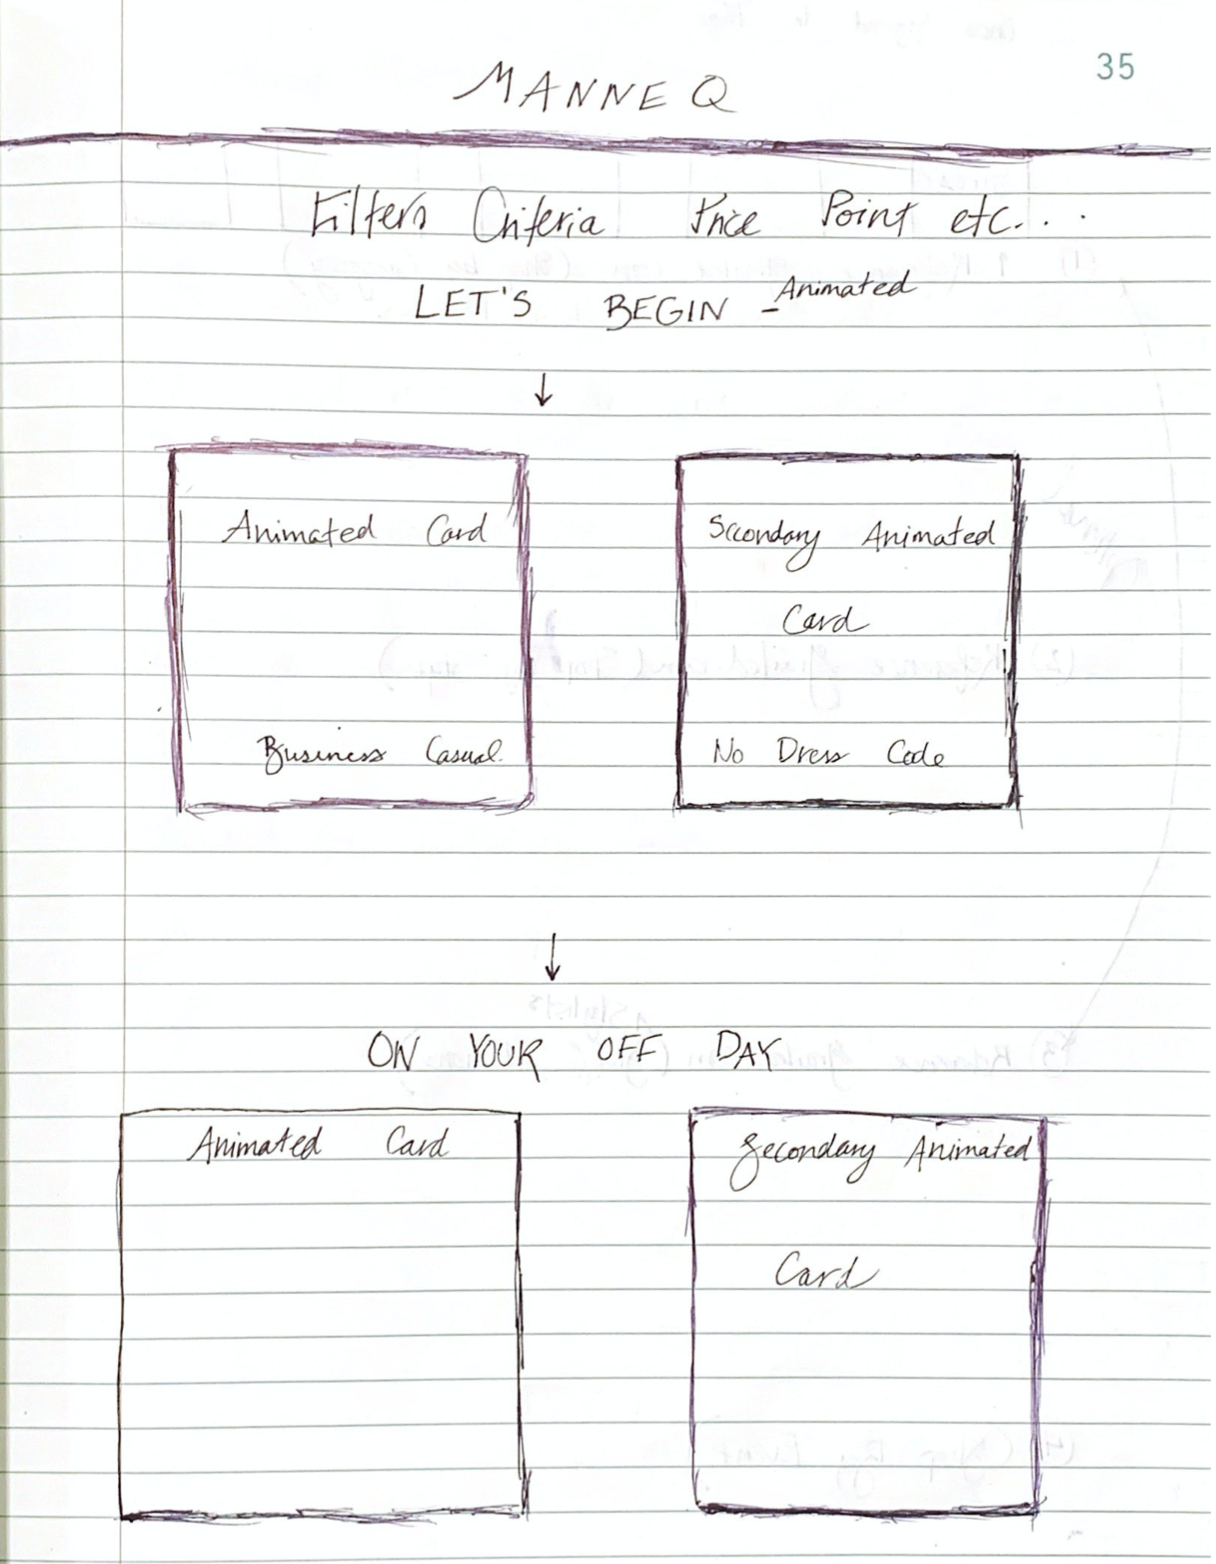 35
MANNE Q
Filters Criteria Price Point etc...
LET'S BEGIN - Animated
↓
Animated Card
Secondary Animated
Card
Business Casual
No Dress Code
↓
ON YOUR OFF DAY
Animated Card
Secondary Animated
Card